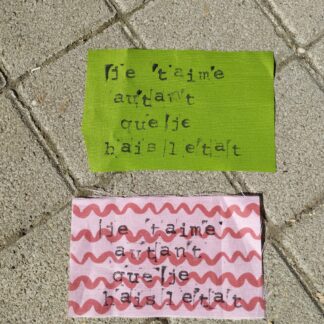 je t'aime
autant
que je
hais l'etat
je t'aime
autant
que je
hais l'etat